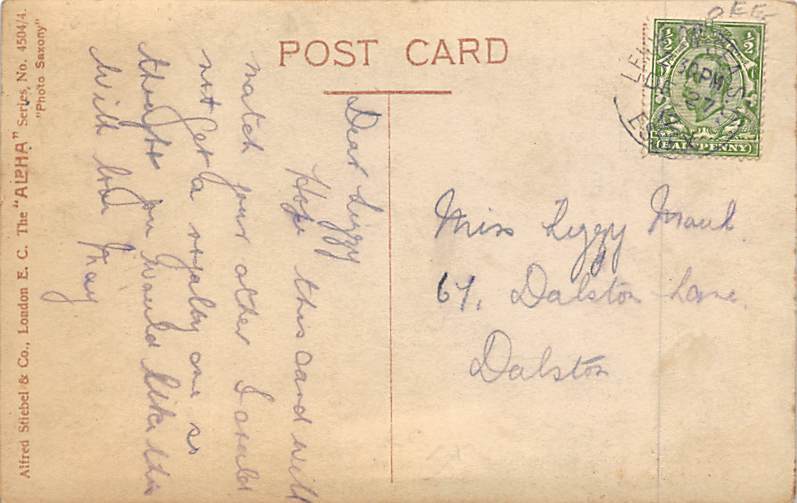 POST CARD
Dear Lizzy
Hope this card will
match your other I could
not get a royalty one so
thought you would like this
With love May
Miss Lizzy
67, Dalston Lane.
Dalston
½ ½
HALFPENNY
Alfred Stiebel & Co., London E. C. The "ALPHA" Series, No. 4504/4.
"Photo Saxony"